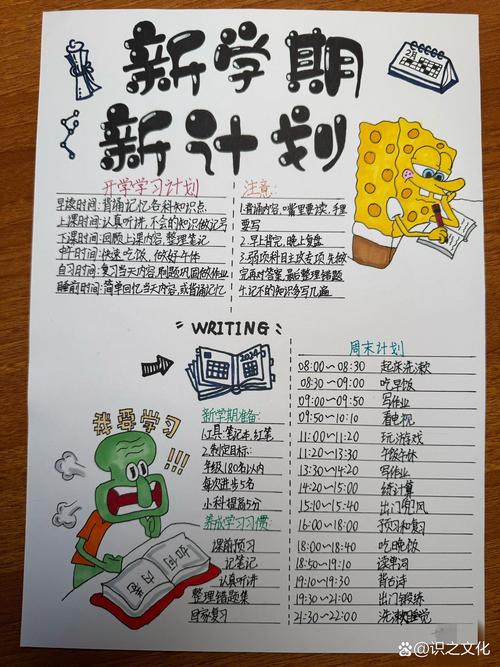 新学期
新计划
2月
开学学习计划
早读时间:背诵记忆各科知识点
上课时间:认真听讲,不会的知识做记号
下课时间:回顾上课内容,整理笔记
中午时间:快速吃饭,做好午休
自习时间:复习当天内容,刷题巩固做作业
睡前时间:简单回忆当天内容,或背诵记忆
注意:
1.背诵内容:嘴里要读,手里
要写
2.早上背完,晚上复盘
3.弱项科目主攻专项,先做
完再对答案,最后整理错题
4.记不的知识多写几遍
WRITING
2024
我要学习
!!!
新学期准备:
1.工具:笔记本,红笔
2.制定目标:
年级180名以内
每次进步5名
小科提高5分
养成学习习惯:
课前预习
记笔记
认真听讲
整理错题集
回家复习
周末计划
08:00~08:30 起床洗漱
08:30~09:00 吃早饭
09:00~09:50 写作业
09:50~10:10 看电视
11:00~11:20 玩游戏
11:20~13:30 午饭午休
13:30~14:20 写作业
14:20~15:00 练计算
15:10~15:40 出门风
16:00~18:00 预习和复习
18:00~18:40 吃晚饭
18:50~19:10 读单词
19:10~19:30 背古诗
19:30~21:00 出门锻炼
21:30~22:00 洗漱睡觉
@识之文化